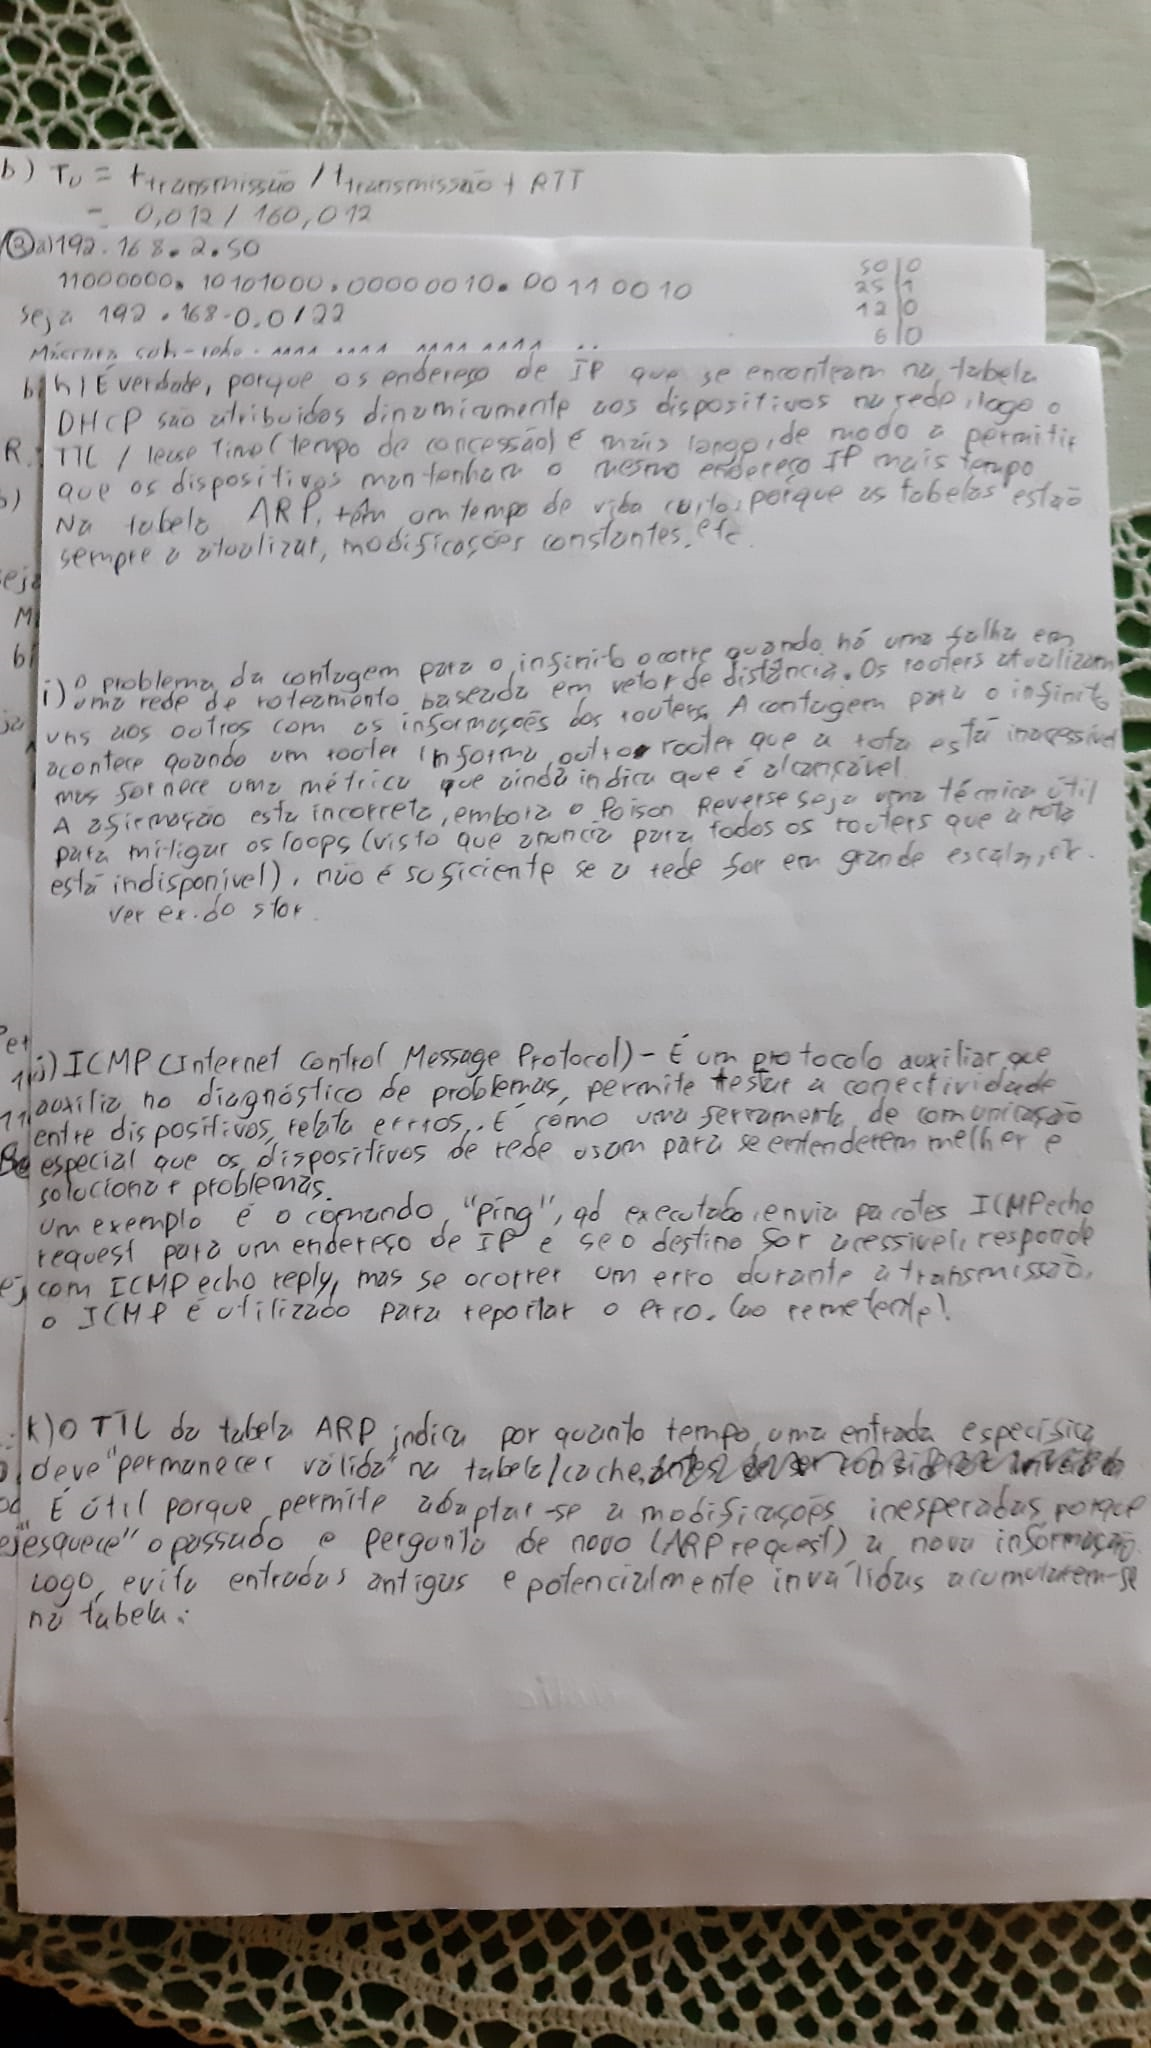 b) Tu = t transmissão / t transmissão + RTT
= 0,012 / 160,012
3 a) 192.168.2.50
11000000.10101000.00000010.00110010
50|0
25|1
12|0
6|0
seja 192.168.0.0/22
h) É verdade, porque os endereço de IP que se encontram na tabela
DHCP são atribuidos dinamicamente aos dispositivos na rede, logo o
TTL / lease time (tempo de concessão) é mais longo, de modo a permitir
que os dispositivos mantenham o mesmo endereço IP mais tempo
Na tabela ARP, têm um tempo de vida curto, porque as tabelas estão
sempre a atualizar, modificações constantes, etc.
i) O problema da contagem para o infinito ocorre quando há uma falha em
uma rede de roteamento baseada em vetor de distância. Os routers atualizam
uns aos outros com as informações dos routers. A contagem para o infinito
acontece quando um router informa outro router que a rota está inacessível
mas fornece uma métrica que ainda indica que é alcançável.
A afirmação esta incorreta, embora o Poison Reverse seja uma técnica útil
para mitigar os loops (visto que anuncia para todos os routers que a rota
está indisponível), não é suficiente se a rede for em grande escala, etc.
ver ex. do stor.
j) ICMP (Internet Control Message Protocol) - É um protocolo auxiliar que
auxilia no diagnóstico de problemas, permite testar a conectividade
entre dispositivos, relata erros.. É como uma ferramenta de comunicação
especial que os dispositivos de rede usam para se entenderem melhor e
solucionar problemas.
Um exemplo é o comando "ping", qd executado, envia pacotes ICMP echo
request para um endereço de IP e se o destino for acessivel, responde
com ICMP echo reply, mas se ocorrer um erro durante a transmissão,
o ICMP é utilizado para reportar o erro. (ao remetente)
k) O TTL da tabela ARP indica por quanto tempo uma entrada específica
deve "permanecer válida" na tabela/cache,
É útil porque permite adaptar-se a modificações inesperadas porque
"esquece" o passado e pergunta de novo (ARP request) a nova informação.
Logo, evita entradas antigas e potencialmente inválidas acumularem-se
na tabela.